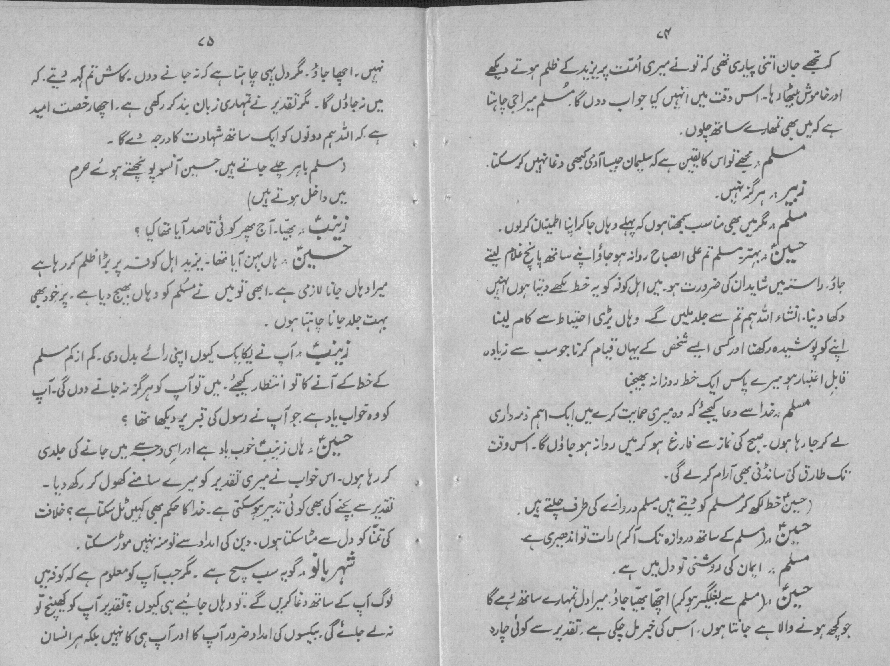 ۷۴
کہ تجھے جان اتنی پیاری تھی کہ تو نے میری اُمت پر یزید کے ظلم ہوتے دیکھے
اور خاموش بیٹھا رہا۔ اس وقت میں انہیں کیا جواب دوں گا۔ مُسلم میرا جی چاہتا
ہے کہ میں بھی تمھارے ساتھ چلوں۔
مسلم :۔ مجھے تو اس کا یقین ہے کہ سلیمان جیسا آدمی کبھی دغا نہیں کر سکتا۔
زبیر :۔ ہرگز نہیں۔
مسلم :۔ مگر میں بھی مناسب سمجھتا ہوں کہ پہلے وہاں جا کر اپنا اطمینان کر لوں۔
حسینؑ :۔ بہتر۔ مسلم تم علی الصباح روانہ ہو جاؤ اپنے ساتھ پانچ غلام لیتے
جاؤ۔ راستہ میں شاید ان کی ضرورت ہو۔ میں اہل کوفہ کو یہ خط لکھے دیتا ہوں انہیں
دکھا دینا۔ انشاء اللہ ہم تم سے جلد ملیں گے۔ وہاں بڑی احتیاط سے کام لینا
اپنے کو پوشیدہ رکھنا اور کسی ایسے شخص کے یہاں قیام کرنا جو سب سے زیادہ
قابلِ اعتبار ہو میرے پاس ایک خط روزانہ بھیجنا
مسلم :۔ خدا سے دعا کیجئے کہ وہ میری حمایت کرے میں ایک اہم ذمہ داری
لے کر جا رہا ہوں۔ صبح کی نماز سے فارغ ہو کر میں روانہ ہو جاؤں گا۔ اس وقت
تک طارق کی سانڈنی بھی آرام کر لے گی۔
(حسینؑ خط لکھ کر مسلم کو دیتے ہیں مسلم دروازے کی طرف چلتے ہیں۔
حسینؑ :۔ (مسلم کے ساتھ دروازہ تک آکر) رات تو اندھیری ہے۔
مسلم :۔ ایمان کی روشنی تو دل میں ہے۔
حسینؑ :۔ (مسلم سے بغلگیر ہو کر) اچھا بھیّا جاؤ۔ میرا دل تمہارے ساتھ رہے گا
جو کچھ ہونے والا ہے جانتا ہوں۔ اس کی خبر مل چکی ہے۔ تقدیر سے کوئی چارہ
۷۵
نہیں۔ اچھا جاؤ۔ مگر دل یہی چاہتا ہے کہ نہ جانے دوں۔ کاش تم کہہ دیتے۔ کہ
میں نہ جاؤں گا۔ مگر تقدیر نے تمہاری زبان بند کر رکھی ہے۔ اچھا رخصت امید
ہے کہ اللہ ہم دونوں کو ایک ساتھ شہادت کا درجہ دے گا۔
(مسلم باہر چلے جاتے ہیں حسین آنسو پونچھتے ہوئے حرم
میں داخل ہوتے ہیں)
زینبؑ :۔ بھیّا۔ آج پھر کوئی قاصد آیا تھا کیا؟
حسینؑ :۔ ہاں بہن آیا تھا۔ یزید اہل کوفہ پر بڑا ظلم کر رہا ہے
میرا وہاں جانا لازمی ہے۔ ابھی تو میں نے مسلم کو وہاں بھیج دیا ہے۔ پر خود بھی
بہت جلد جانا چاہتا ہوں۔
زینبؑ :۔ آپ نے یکایک کیوں اپنی رائے بدل دی۔ کم از کم مسلم
کے خط کے آنے کا تو انتظار کیجئے۔ میں تو آپ کو ہرگز نہ جانے دوں گی۔ آپ
کو وہ خواب یاد ہے جو آپ نے رسول کی قبر پر دیکھا تھا؟
حسینؑ :۔ ہاں زینبؑ خوب یاد ہے اور اسی وجہ سے میں جانے کی جلدی
کر رہا ہوں۔ اس خواب نے میری تقدیر کو میرے سامنے کھول کر رکھ دیا۔
تقدیر سے بچنے کی بھی کوئی تدبیر ہو سکتی ہے۔ خدا کا حکم بھی کہیں ٹل سکتا ہے؟ خلافت
کی تمنّا کو دل سے مٹا سکتا ہوں۔ دین کی امداد سے تو منہ نہیں موڑ سکتا۔
شہر بانو :۔ گو یہ سب سچ ہے۔ مگر جب آپ کو معلوم ہے کہ کوفہ میں
لوگ آپ کے ساتھ دغا کریں گے۔ تو وہاں جائیے ہی کیوں؟ تقدیر آپ کو کھینچ تو
نہ لے جائے گی۔ بیکسوں کی امداد ضرور آپ کا اور آپ ہی کا نہیں بلکہ ہر انسان